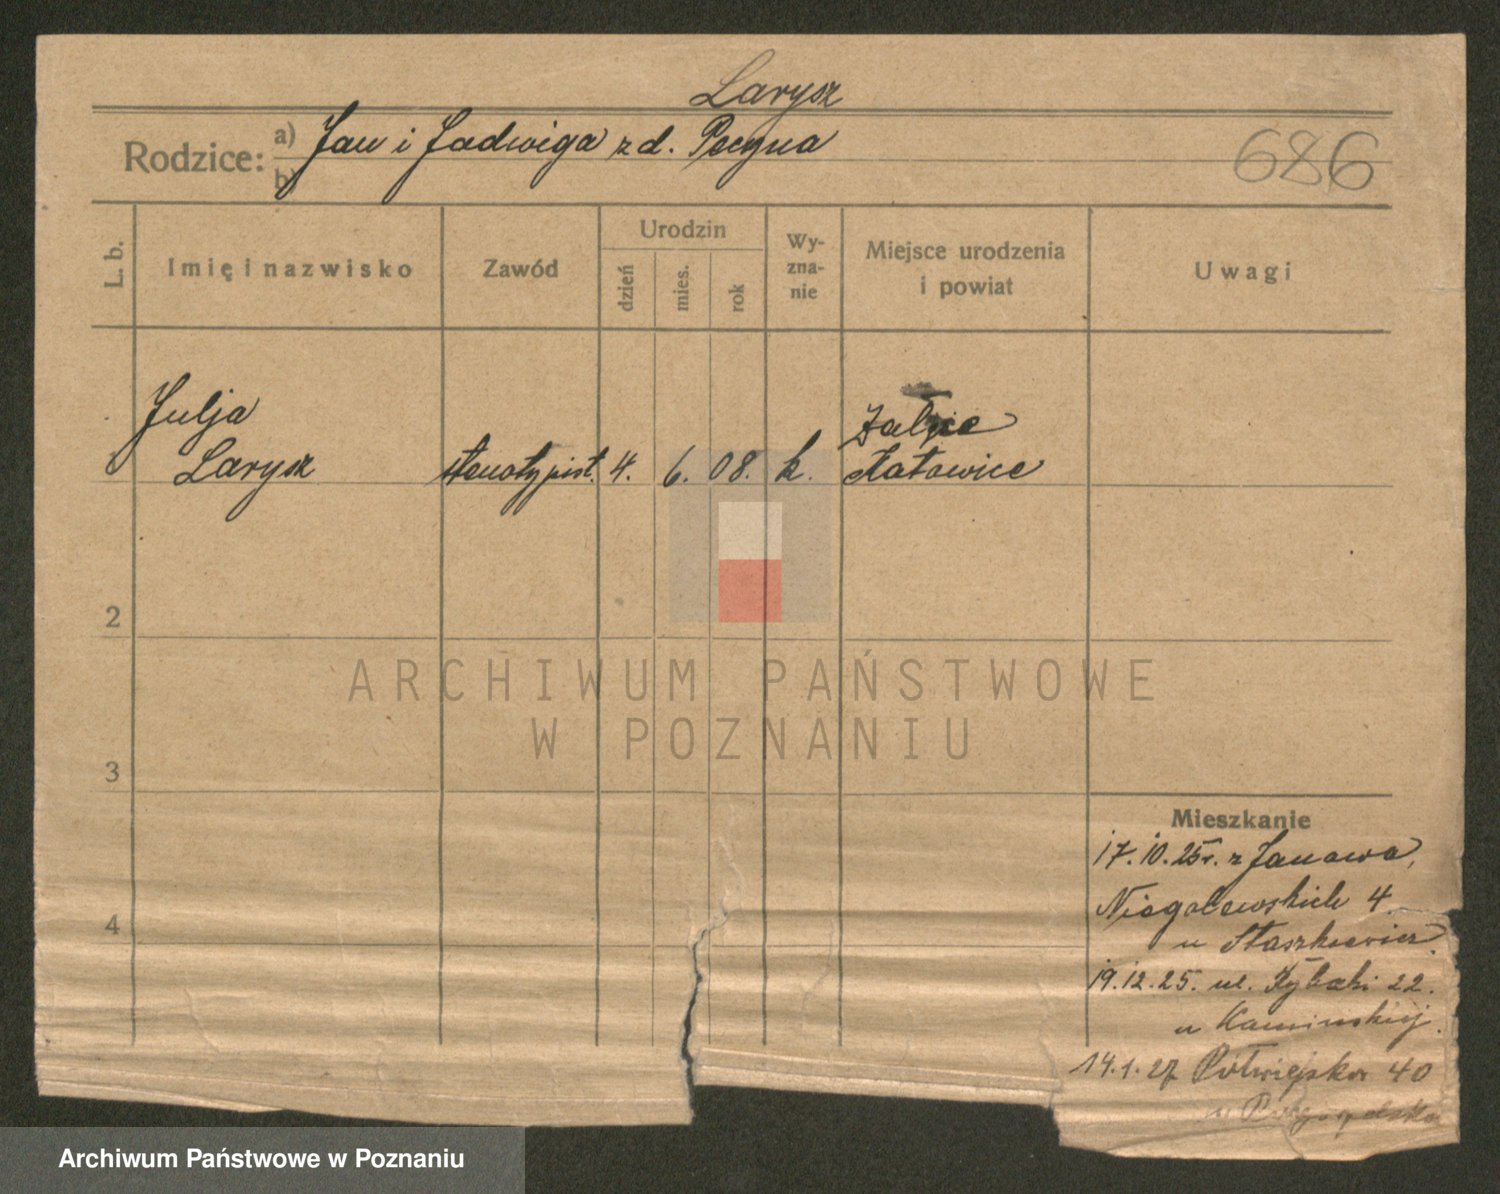 Larysz
Rodzice: a) Jan i Jadwiga z d. Pecyna
b)
686
L. b.
Imię i nazwisko
Zawód
Urodzin
dzień
mies.
rok
Wy-
zna-
nie
Miejsce urodzenia
i powiat
Uwagi
Julja
Larysz
stenotypist.
4.
6.
08.
k.
Załęże
Katowice
2
ARCHIWUM PAŃSTWOWE
W POZNANIU
3
Mieszkanie
17.10.25r. z Janowa,
Niegolewskich 4
u Staszkiewicz.
4
19.12.25. ul. Rybaki 22.
u Kamińskiej.
14.1.27 Półwiejska 40
u
Archiwum Państwowe w Poznaniu